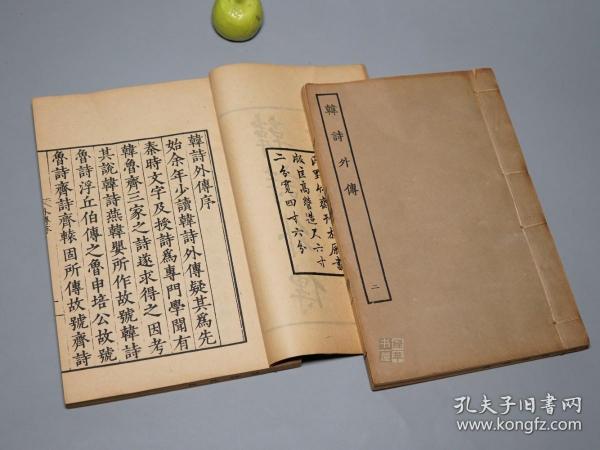 韓詩外傳序
始余年少讀韓詩外傳疑其爲先
秦時文字及授詩爲專門學聞有
韓魯齊三家之詩遂求得之因考
其說韓詩燕韓嬰所作故號韓詩
魯詩浮丘伯傳之魯申培公故號
魯詩齊詩齊轅固所傳故號齊詩
版匡高營造尺六寸
二分寬四寸六分
韓詩外傳
二
孔夫子旧书网
www.kongfz.com